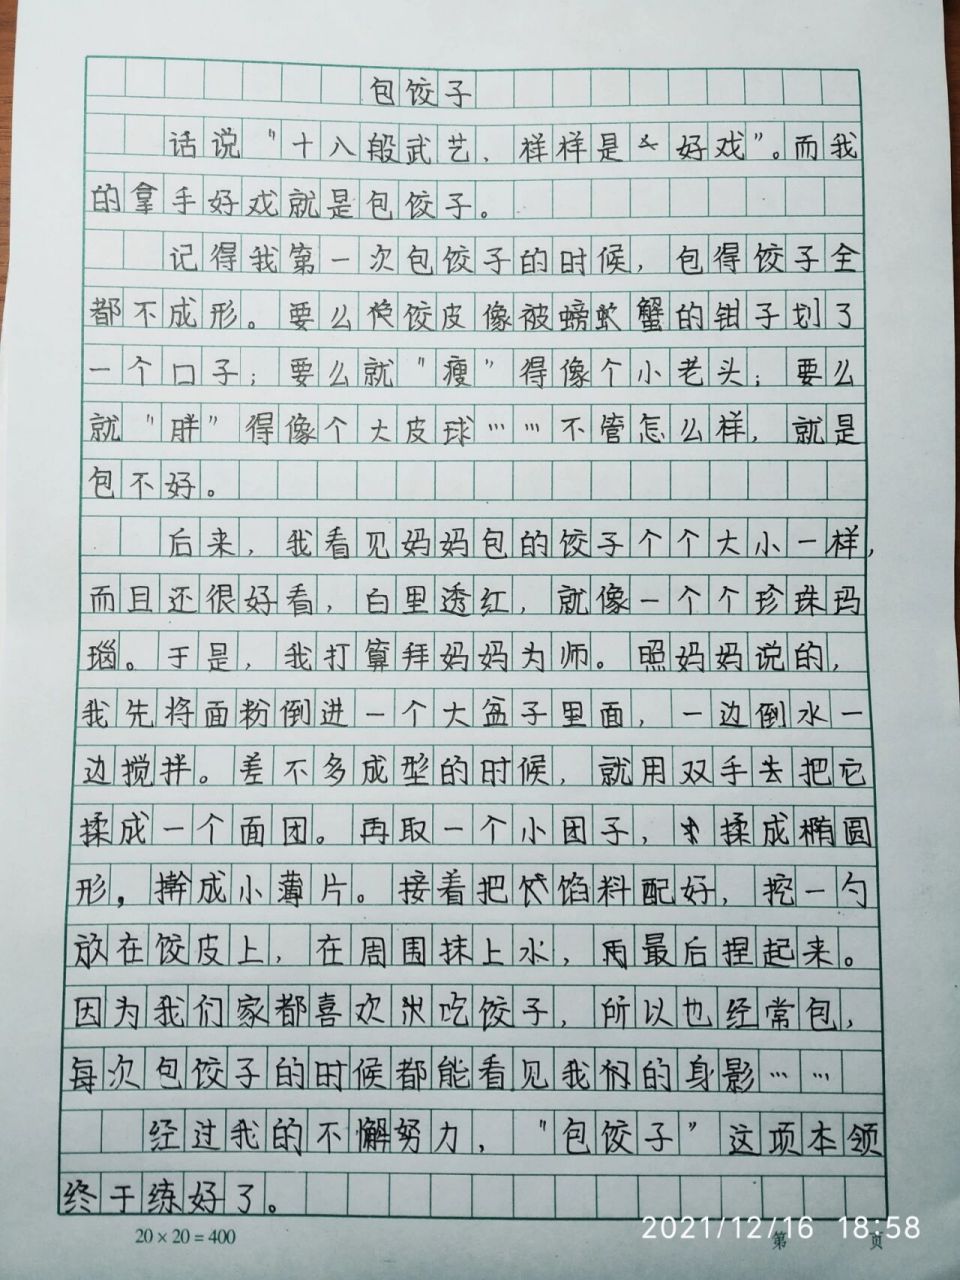 包饺子
话说“十八般武艺，样样是好戏”。而我
的拿手好戏就是包饺子。
记得我第一次包饺子的时候，包得饺子全
都不成形。要么饺皮像被螃蟹的钳子划了
一个口子；要么就“瘦”得像个小老头；要么
就“胖”得像个大皮球……不管怎么样，就是
包不好。
后来，我看见妈妈包的饺子个个大小一样，
而且还很好看，白里透红，就像一个个珍珠玛
瑙。于是，我打算拜妈妈为师。照妈妈说的，
我先将面粉倒进一个大盆子里面，一边倒水一
边搅拌。差不多成型的时候，就用双手去把它
揉成一个面团。再取一个小团子，揉成椭圆
形，擀成小薄片。接着把馅料配好，挖一勺
放在饺皮上，在周围抹上水，再最后捏起来。
因为我们家都喜欢吃饺子，所以也经常包，
每次包饺子的时候都能看见我们的身影……
经过我的不懈努力，“包饺子”这项本领
终于练好了。
20×20=400
第 页
2021/12/16 18:58